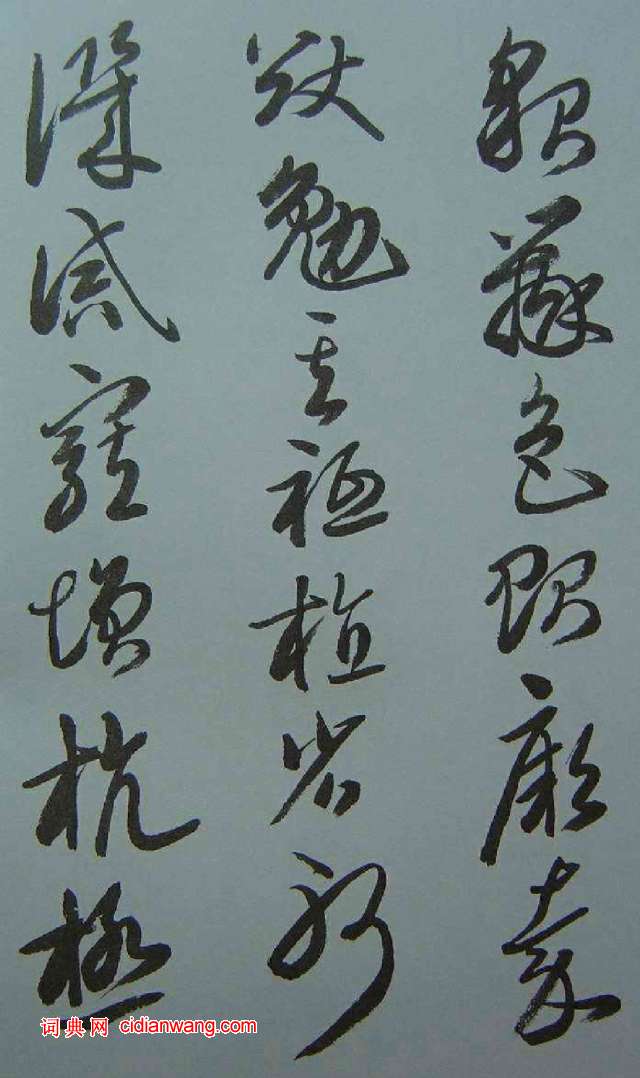 貌辨色貽厥嘉
猷勉其祗植省躬
譏誡寵增抗極
词典网 cidianwang.com